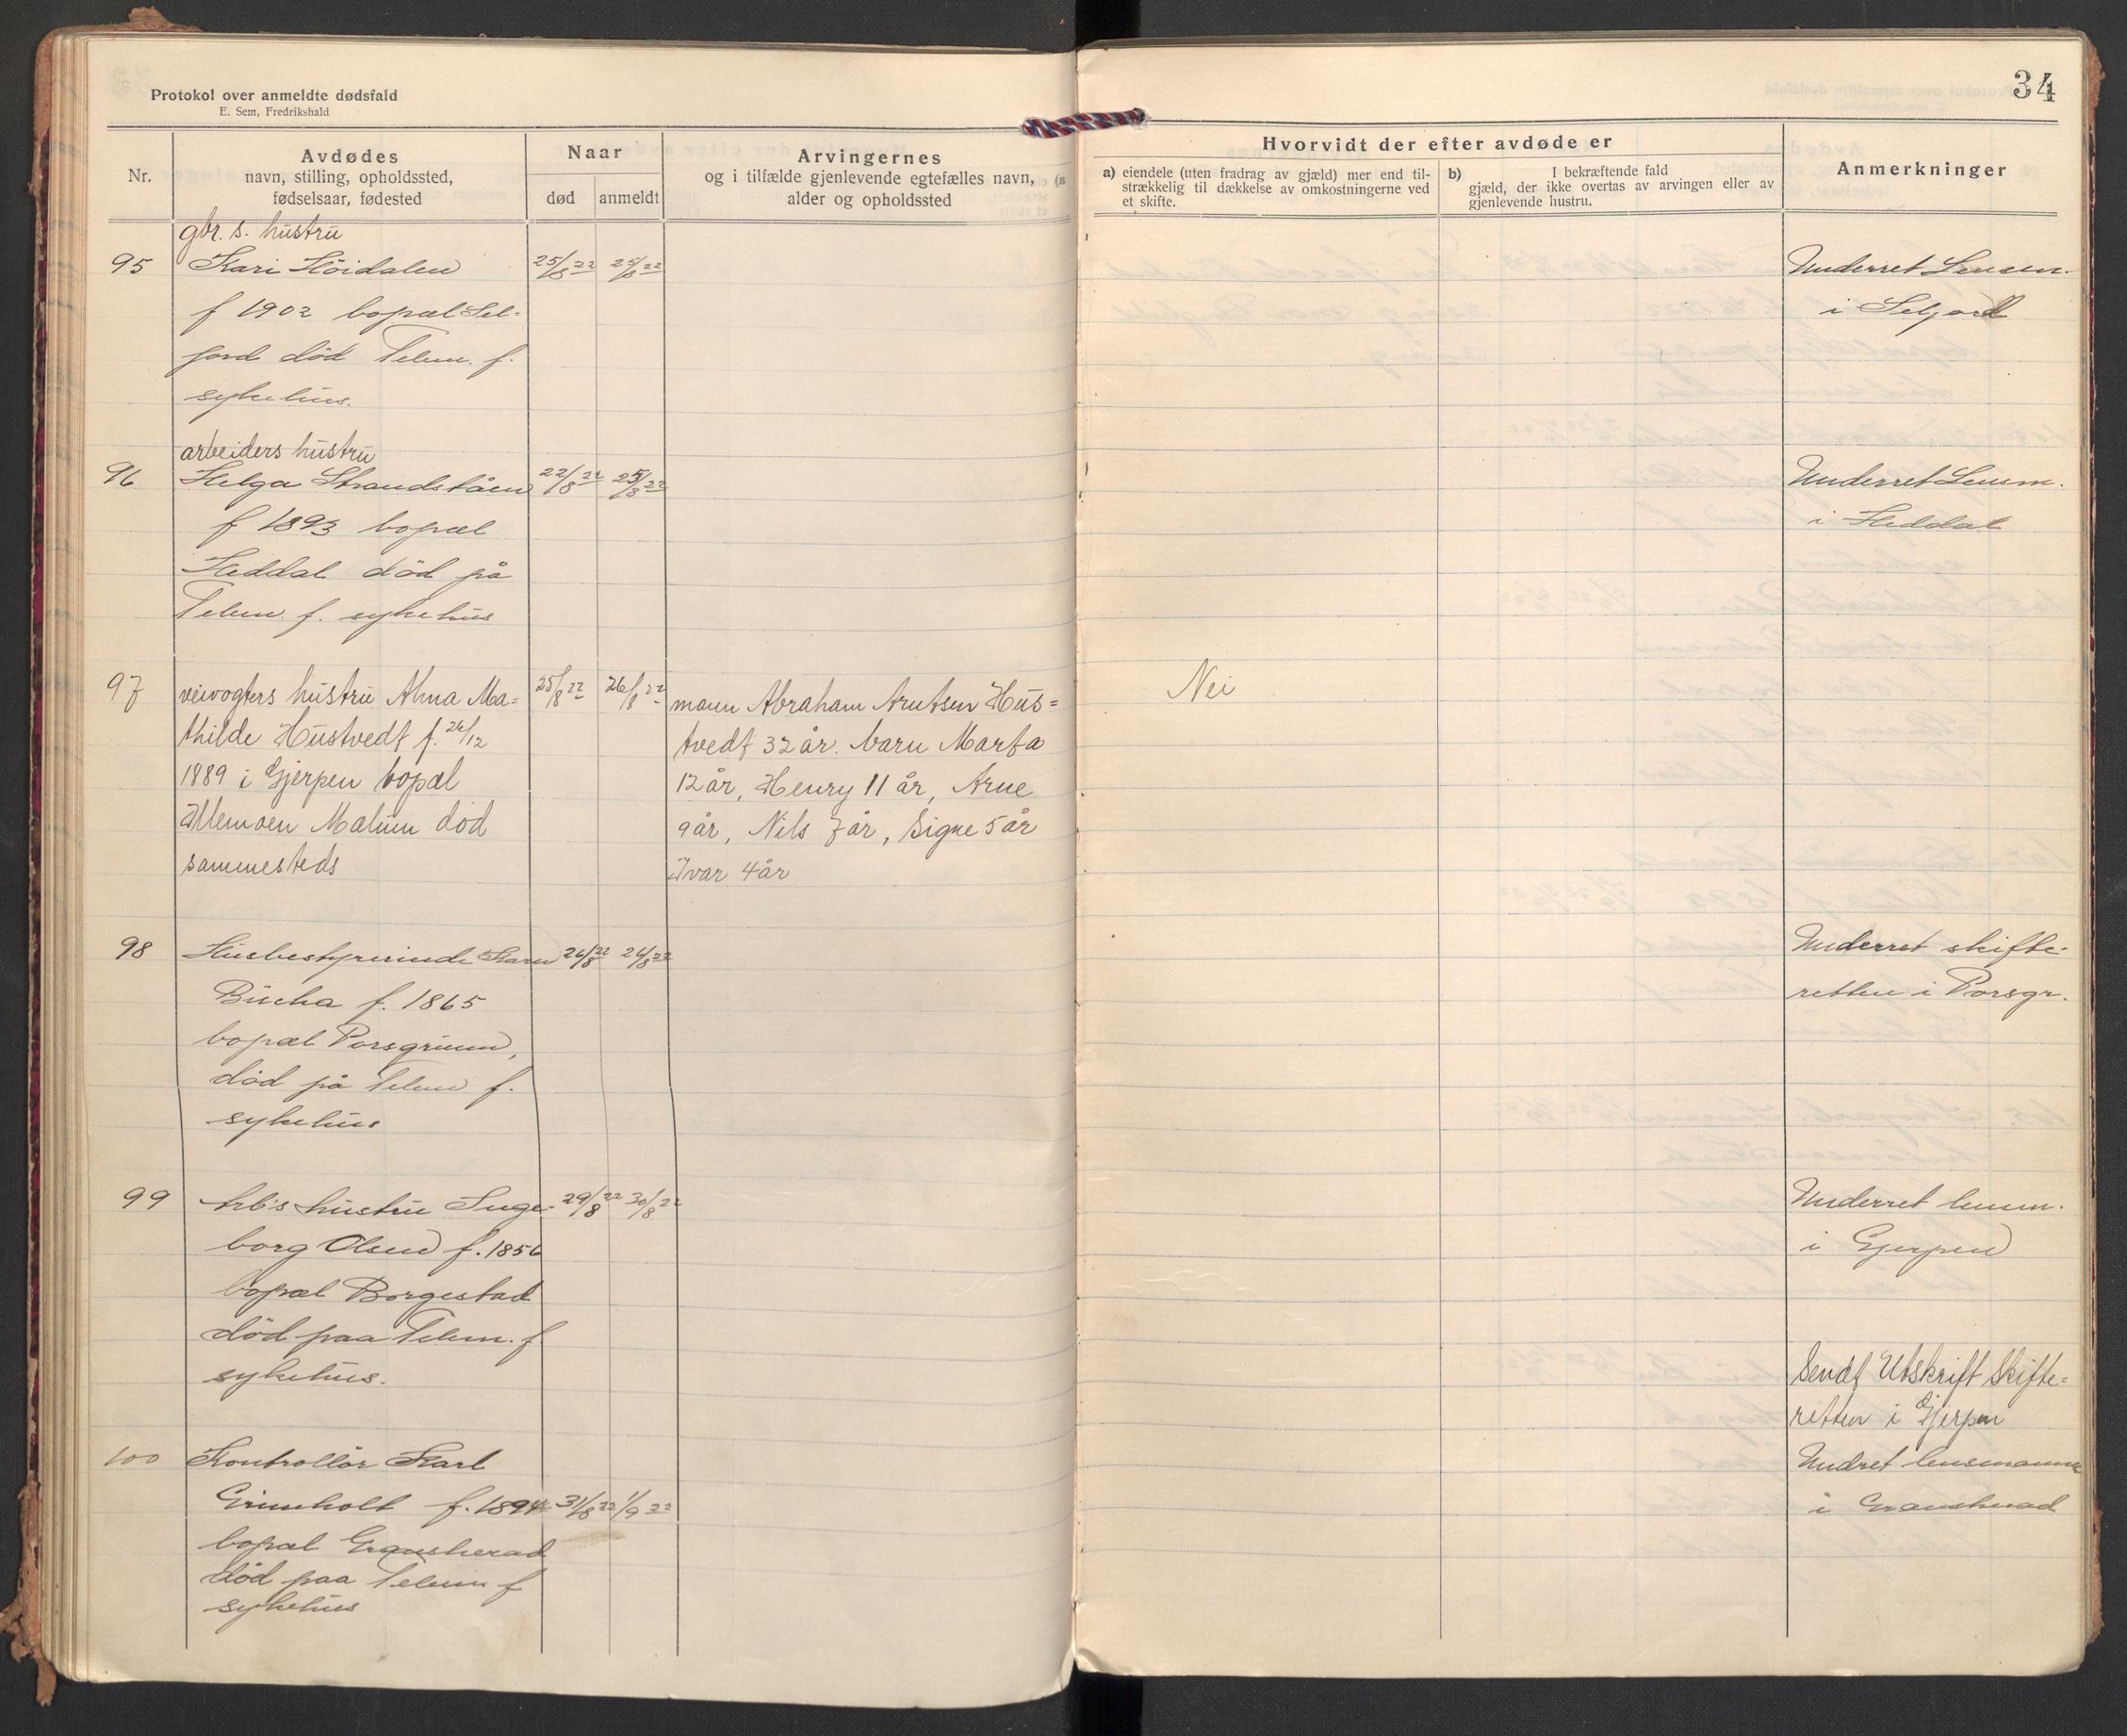 Protokol over anmeldte dødsfald
E. Sem, Fredrikshald
34
Nr.
Avdødes
navn, stilling, opholdssted,
fødselsaar, fødested
Naar
død
anmeldt
Arvingernes
og i tilfælde gjenlevende egtefælles navn,
alder og opholdssted
Hvorvidt der efter avdøde er
a) eiendele (uten fradrag av gjæld) mer end til-
strækkelig til dækkelse av omkostningerne ved
et skifte.
b) I bekræftende fald
gjæld, der ikke overtas av arvingen eller av
gjenlevende hustru.
Anmerkninger
gbr. s. hustru
95 Kari Höidalen 25/8 22 25/8 22 Underret Lensm.
f 1902 bopæl Sel- i Seljord
jord död Telem. f.
sykehus.
arbeiders hustru
96 Helga Strandståen 22/8 22 25/8 22 Underret Lensm.
f 1893 bopæl i Heddal
Heddal död på
Telem. f. sykehus
97 veivogters hustru Alma Ma= 25/8 22 26/8 22 mann Abraham Arntsen Hus= Nei
thilde Hustvedt f. 26/12 tvedt 32 år. barn Marta
1889 i Gjerpen bopæl 12 år, Henry 11 år, Arne
Mælum död 9 år, Nils 7 år, Signe 5 år
sammesteds Ivar 4 år
98 Husbestyrerinde Karen 26/8 22 26/8 22 Underret skifte-
f. 1865 retten i Porsgr.
bopæl Porsgrunn,
död på Telem f.
sykehus
99 Arb's hustru Inge- 29/8 22 30/8 22 Underret lensm.
borg Olsen f. 1856 i Gjerpen
bopæl Borgestad
död paa Telem. f.
sykehus.
Sendt Utskrift Skifte=
retten i Gjerpen
100 Kontrollör Karl Undret lensmannen
Grimholt f. 1894 31/8 22 1/9 22 i Gransherad
bopæl Gransherad
död paa Telem f
sykehus